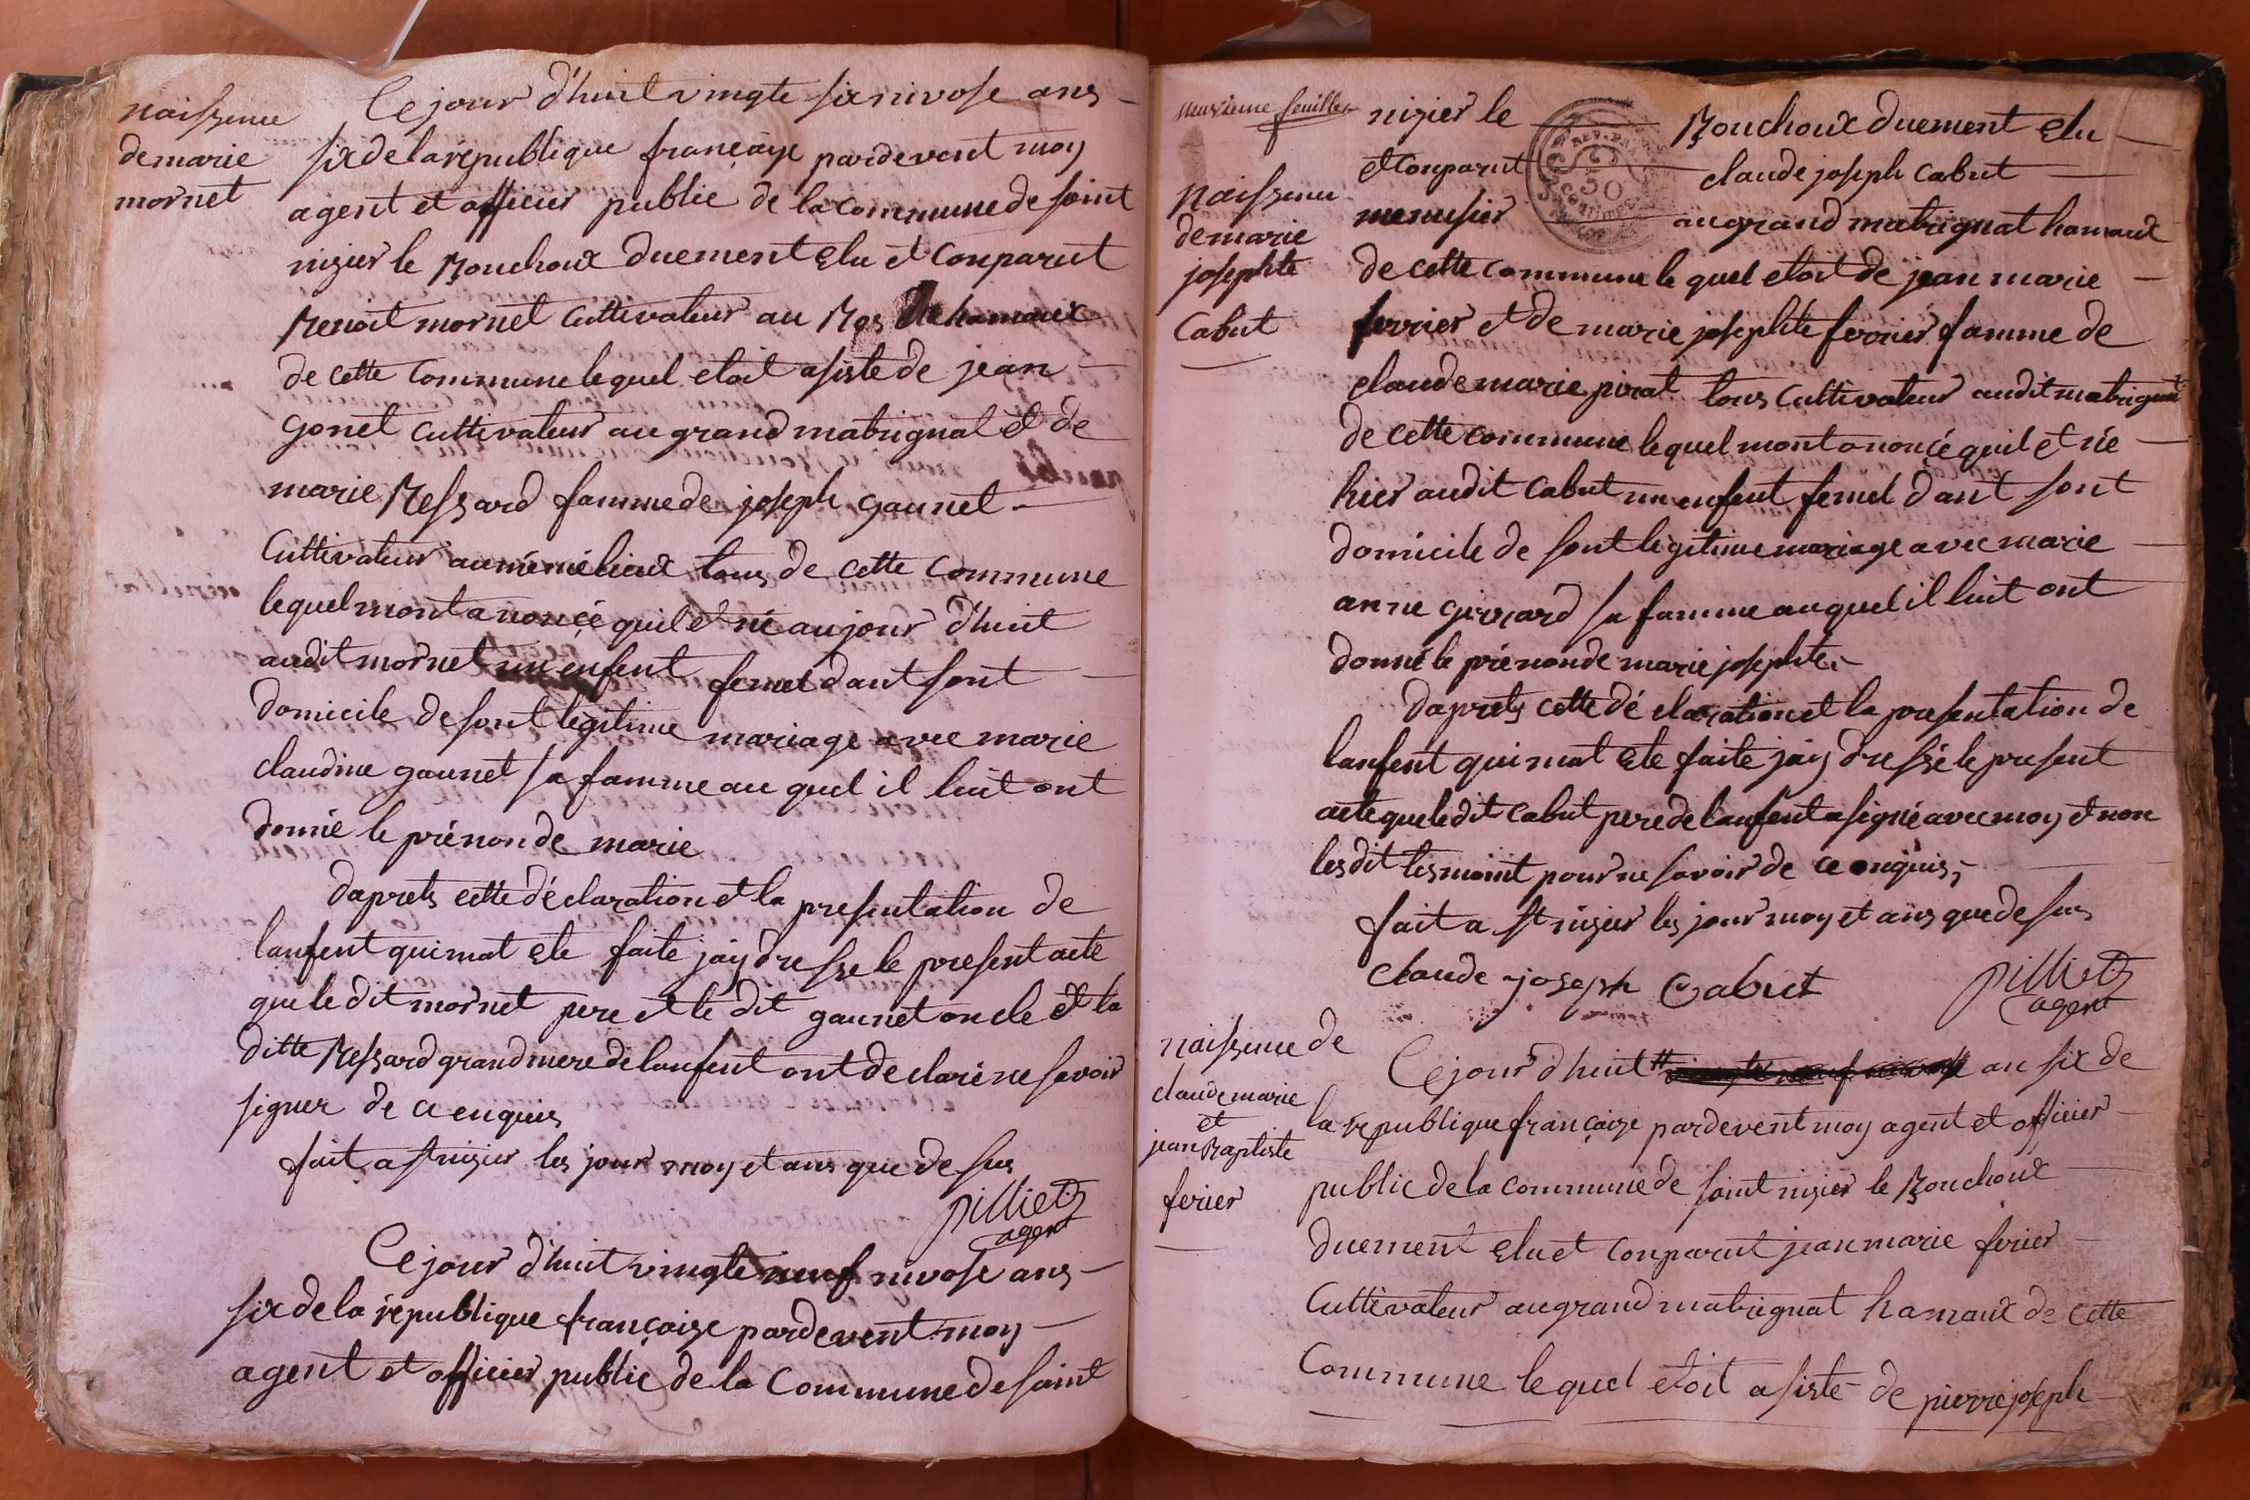 naissence
de marie
mornet
Ce jour d'huit vingte six nivose ans
six de la republique françaize pardevent moy
agent et officier public de la commune de saint
nizier le Bouchoux duement Elu et Conparut
Benoit mornet cultivateur au Bos hamaux
de cette Commune lequel etoit asiste de jean
gonet cultivateur au grand matrignat et de
marie Bessard famme de joseph gaunet
Cultivateur au méme lieux tous de cette Commune
lequel mont anoncé quil et né aujour d'huit
audit mornet un enfent femel dant sont
domicile de sont legitime mariage avec marie
claudine gaunet sa famme au quel il luit ont
donné le prénon de marie
daprets cette déclaration et la presentation de
lanfent qui mat ete faite jay dresse le present acte
que le dit mornet pere et le dit gaunet oncle et la
ditte Bessard grand mere de lanfent ont declaré ne savoir
signer de ce enquis
fait a st nizier les jour moy et ans que de sus
pilliet
agent
Ce jour d'huit vingte neuf nivose ans
six de la republique françaize pardevent moy
agent et officier public de la Commune de saint
feuillet
nizier le Bouchoux duement Elu
et Conparut claude joseph Cabut
menusier au grand matrignat hamaux
50
naissence
de marie
josephte
Cabut
de cette commune le quel etoit de jean marie
ferrier et de marie josephte ferrier famme de
claude marie pirat tous cultivateur audit matrignat
de cette commune lequel mont anoncé quil et née
hier audit Cabut un enfent femel dant sont
domicile de sont legitime mariage avec marie
anne girrard sa famme auquel il luit ont
donné le prénon de marie josephte
daprets cette déclaration et la presentation de
lanfent qui mat ete faite jay dressé le present
acte que ledit cabut pere de lanfent a signé avec moy et non
les dit tesmoint pour ne savoir de ce enquis
fait a st nizier les jour moy et ans que de sus
claude joseph Cabut
pilliet
agent
naissence de
claude marie
et
jean Baptiste
ferier
Ce jour d'huit vingte neuf nivose an six de
la republique françaize pardevent moy agent et officier
public de la commune de saint nizier le Bouchoux
duement Elu et conparut jean marie ferier
Cultivateur au grand matrignat hamaux de cette
Commune le quel etoit asiste de pierre joseph